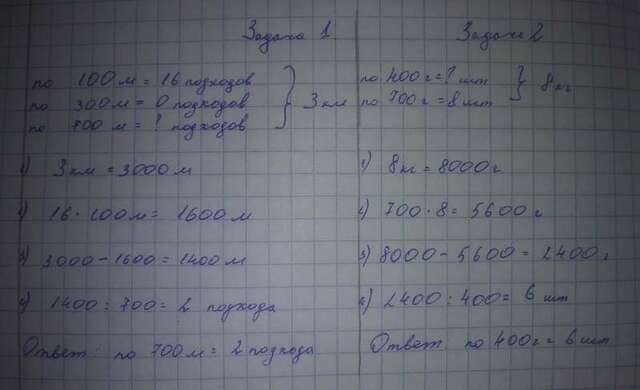 Задача 1
по 100 м = 16 подходов
по 300 м = 0 подходов
по 700 м = ? подходов
} 3 км
1) 3 км = 3000 м
2) 16 · 100 м = 1600 м
3) 3000 - 1600 = 1400 м
4) 1400 : 700 = 2 подхода
Ответ: по 700 м = 2 подхода
Задача 2
по 400 г = ? шт
по 700 г = 8 шт
} 8 кг
1) 8 кг = 8000 г
2) 700 · 8 = 5600 г
3) 8000 - 5600 = 2400 г
4) 2400 : 400 = 6 шт
Ответ по 400 г = 6 шт